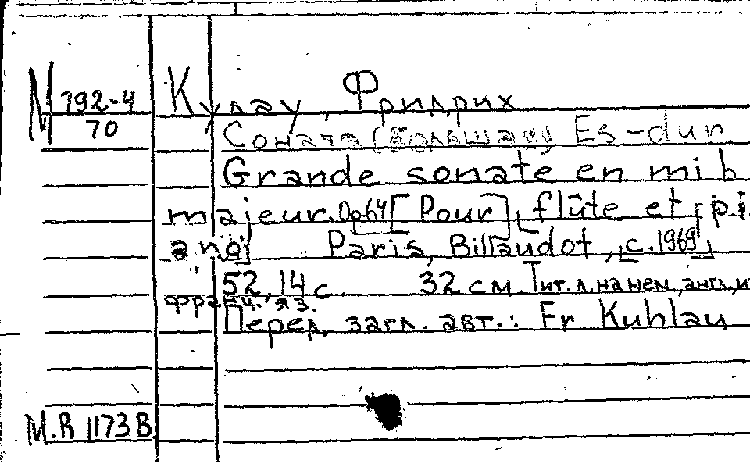 М 792-4
70
Кулау, Фридрих
Соната (большая) Es-dur
Grande sonate en mi b
majeur. Op64 [Pour] flûte et pi
ano] Paris, Billaudot, [c. 1969]
52, 14 с. 32 см Тит. л. на нем., англ., и
франц. яз.
Перед загл. авт.: Fr Kuhlau
M.R 1173B